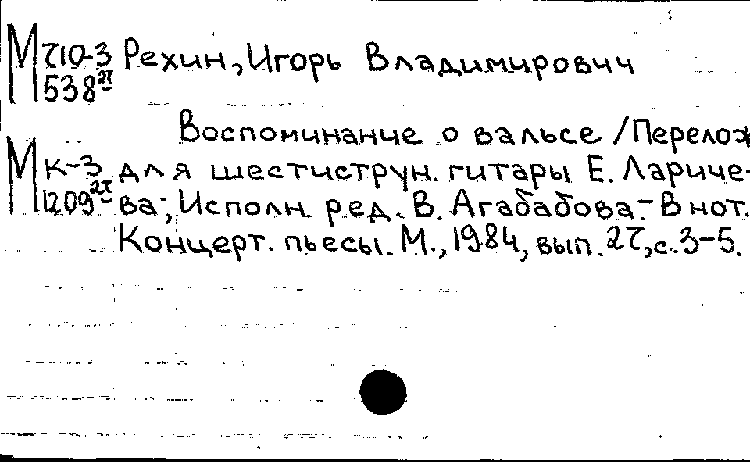 М 710-3 Рехин, Игорь Владимирович
538 27
Воспоминание о вальсе /Перелож
М К-3 для шестиструн. гитары Е. Лариче-
1209 27 ва; Исполн. ред. В. Агабабова.- В нот.
Концерт. пьесы. М., 1984, вып. 27, с. 3-5.